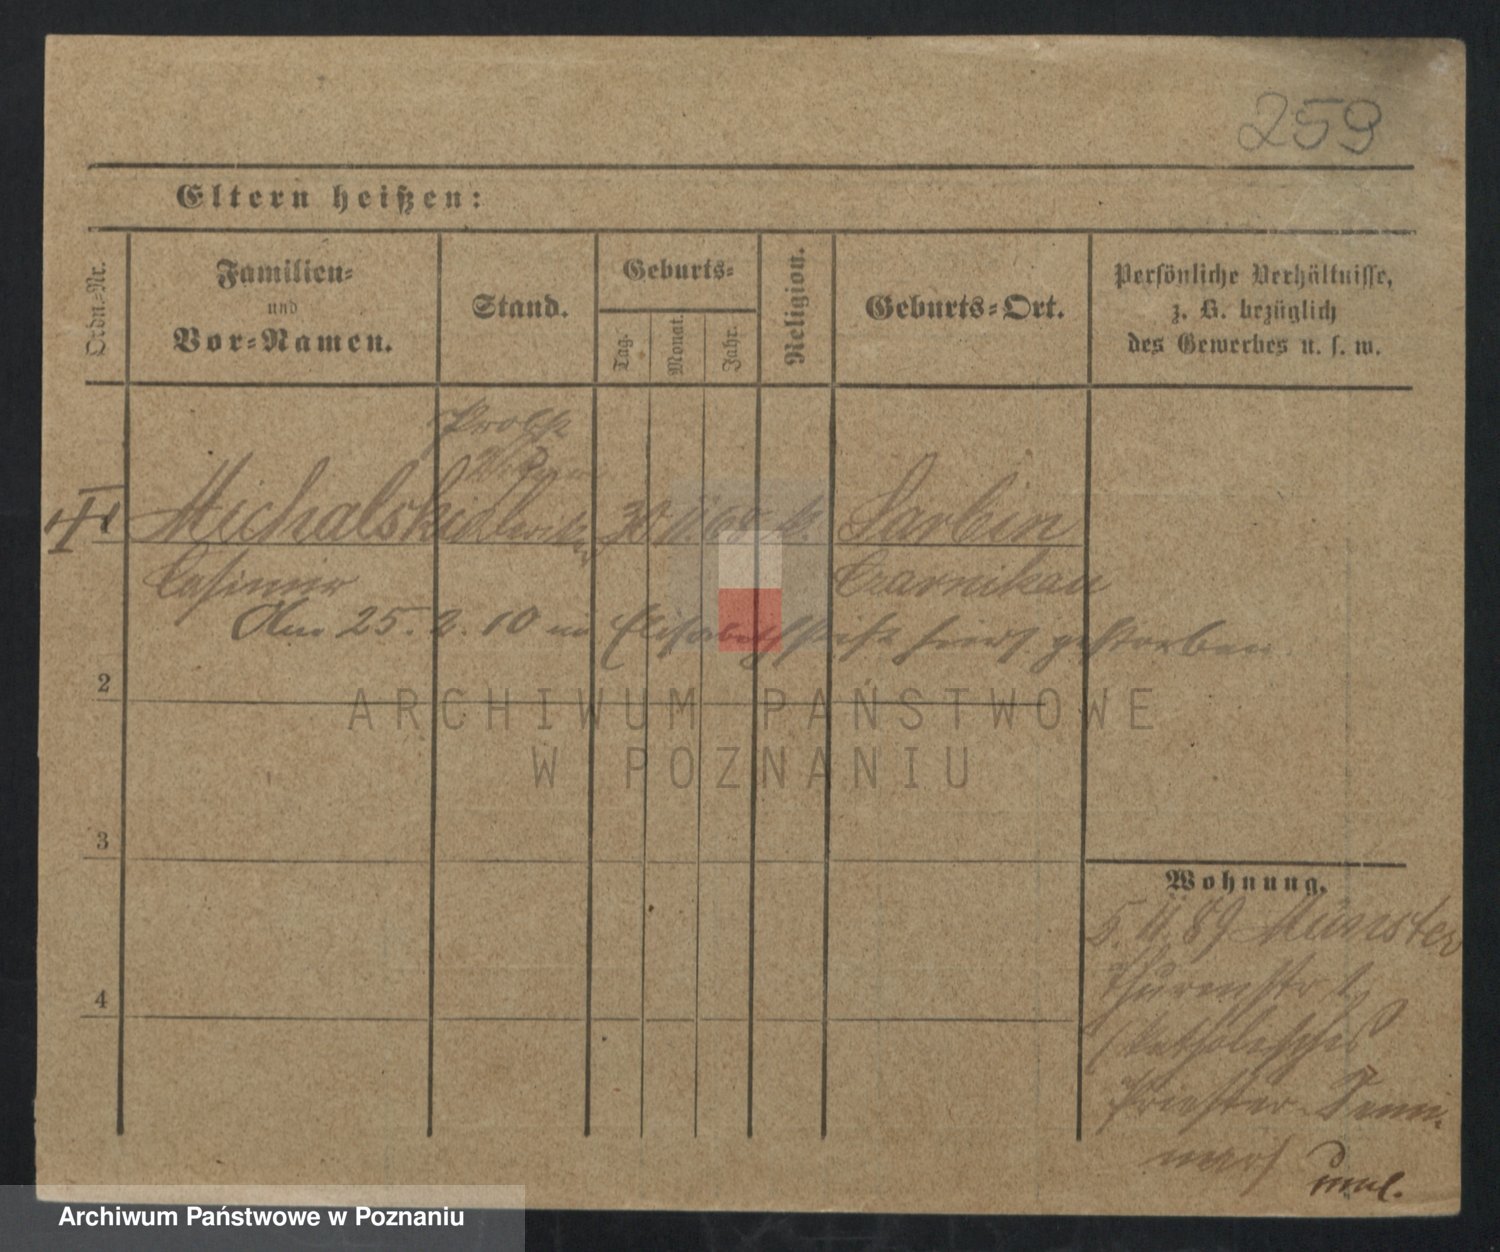 259
Eltern heißen:
Ordn.=Nr.
Familien=
und
Vor=Namen.
Stand.
Geburts=
Tag.
Monat.
Jahr.
Religion.
Geburts=Ort.
Persönliche Verhältnisse,
z. B. bezüglich
des Gewerbes u. s. w.
Probst
Michalski 30 11. 68 k. Sarbin
Casimir Czarnikau
Am 25. 2. 10 im Elisabethstift hiers. gestorben.
2
3
4
Wohnung.
5. 11. 89 Münster
(katholisches
Priester-Semi-
nar)
ARCHIWUM PAŃSTWOWE
W POZNANIU
Archiwum Państwowe w Poznaniu